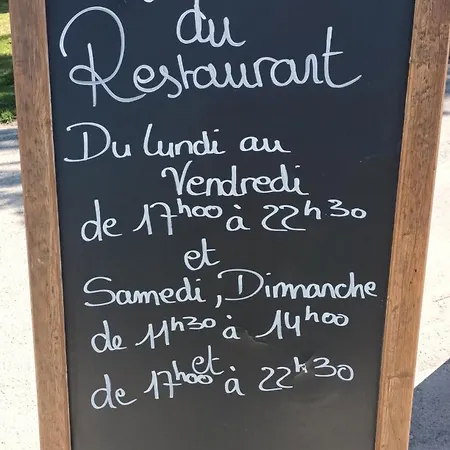 du
Restaurant
Du lundi au
Vendredi
de 17h00 à 22h30
et
Samedi, Dimanche
de 11h30 à 14h00
et
de 17h00 à 22h30